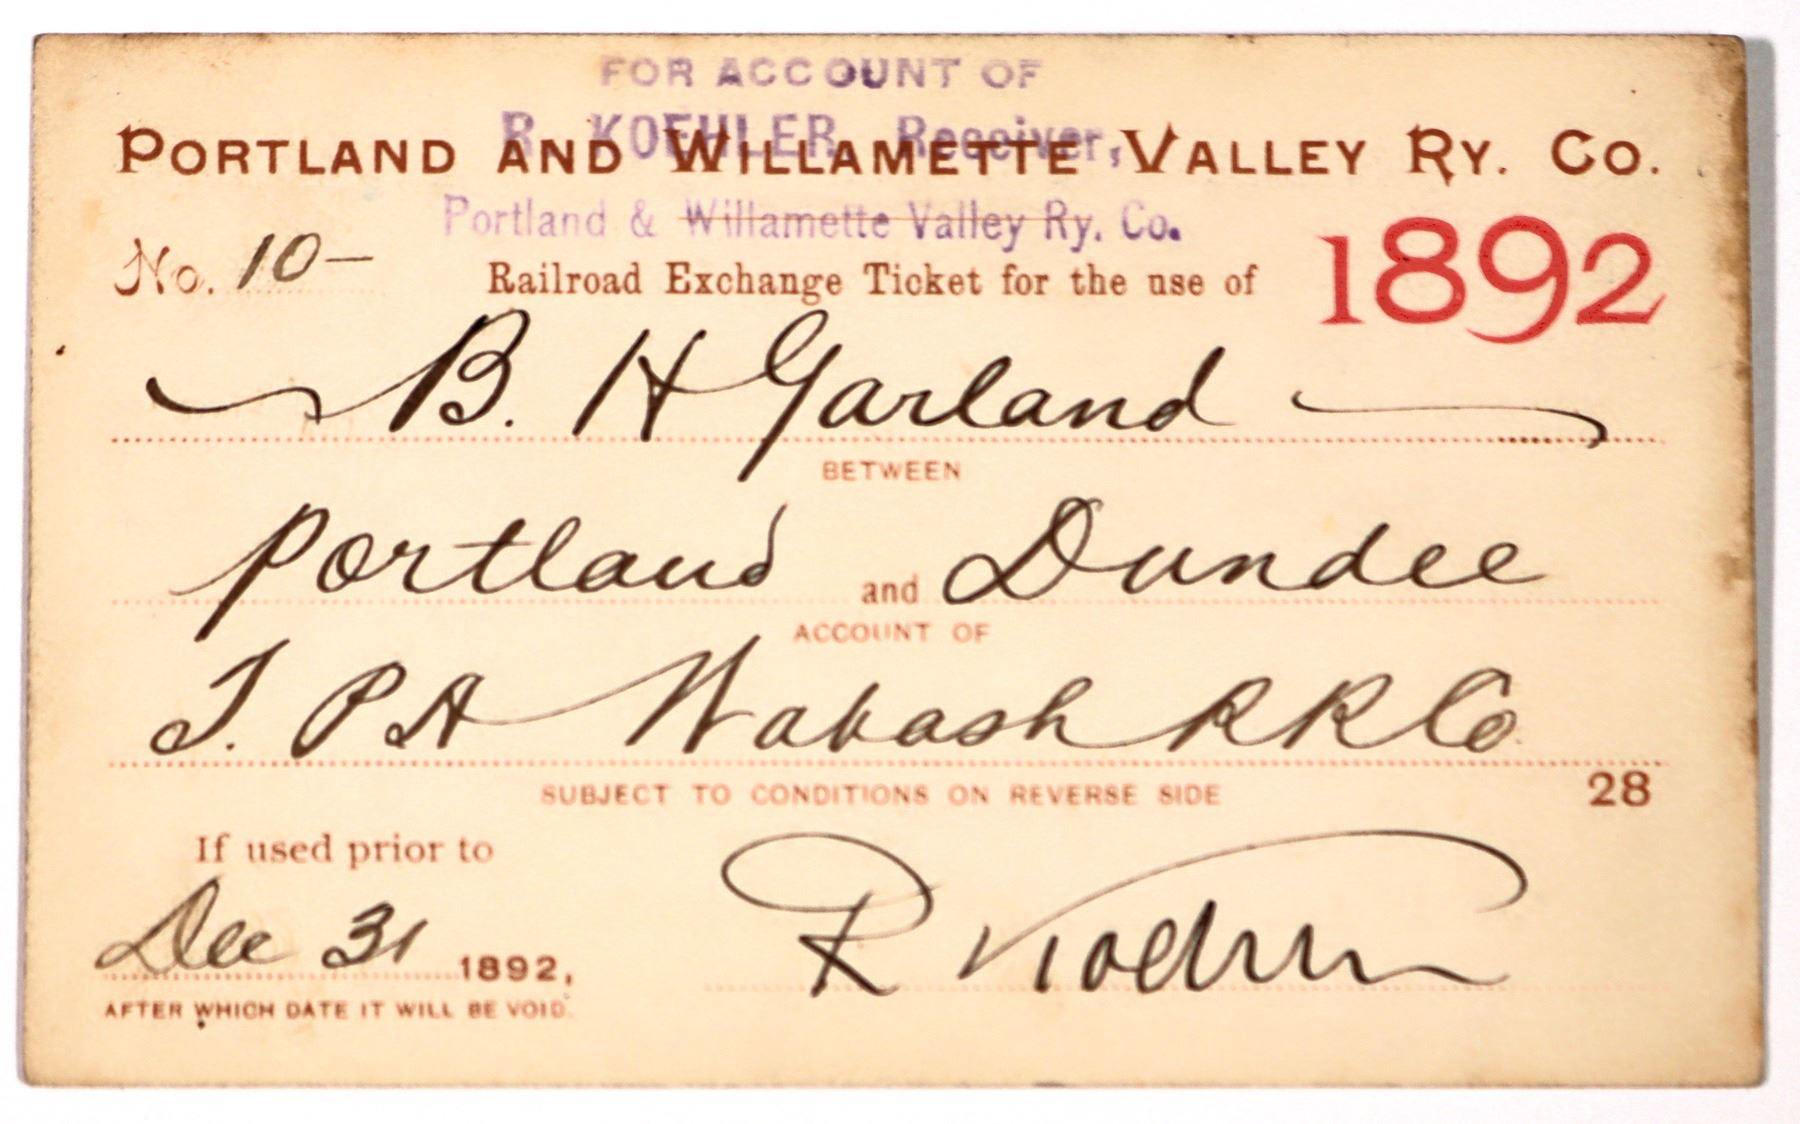 FOR ACCOUNT OF
R. KOEHLER, Receiver,
PORTLAND AND WILLAMETTE VALLEY RY. CO.
Portland & Willamette Valley Ry. Co.
No. 10—
1892
Railroad Exchange Ticket for the use of
B. H Garland
BETWEEN
Portland and Dundee
ACCOUNT OF
T. P A Wabash R R Co
SUBJECT TO CONDITIONS ON REVERSE SIDE
28
If used prior to
Dec 31 1892,
AFTER WHICH DATE IT WILL BE VOID.
R Koehler